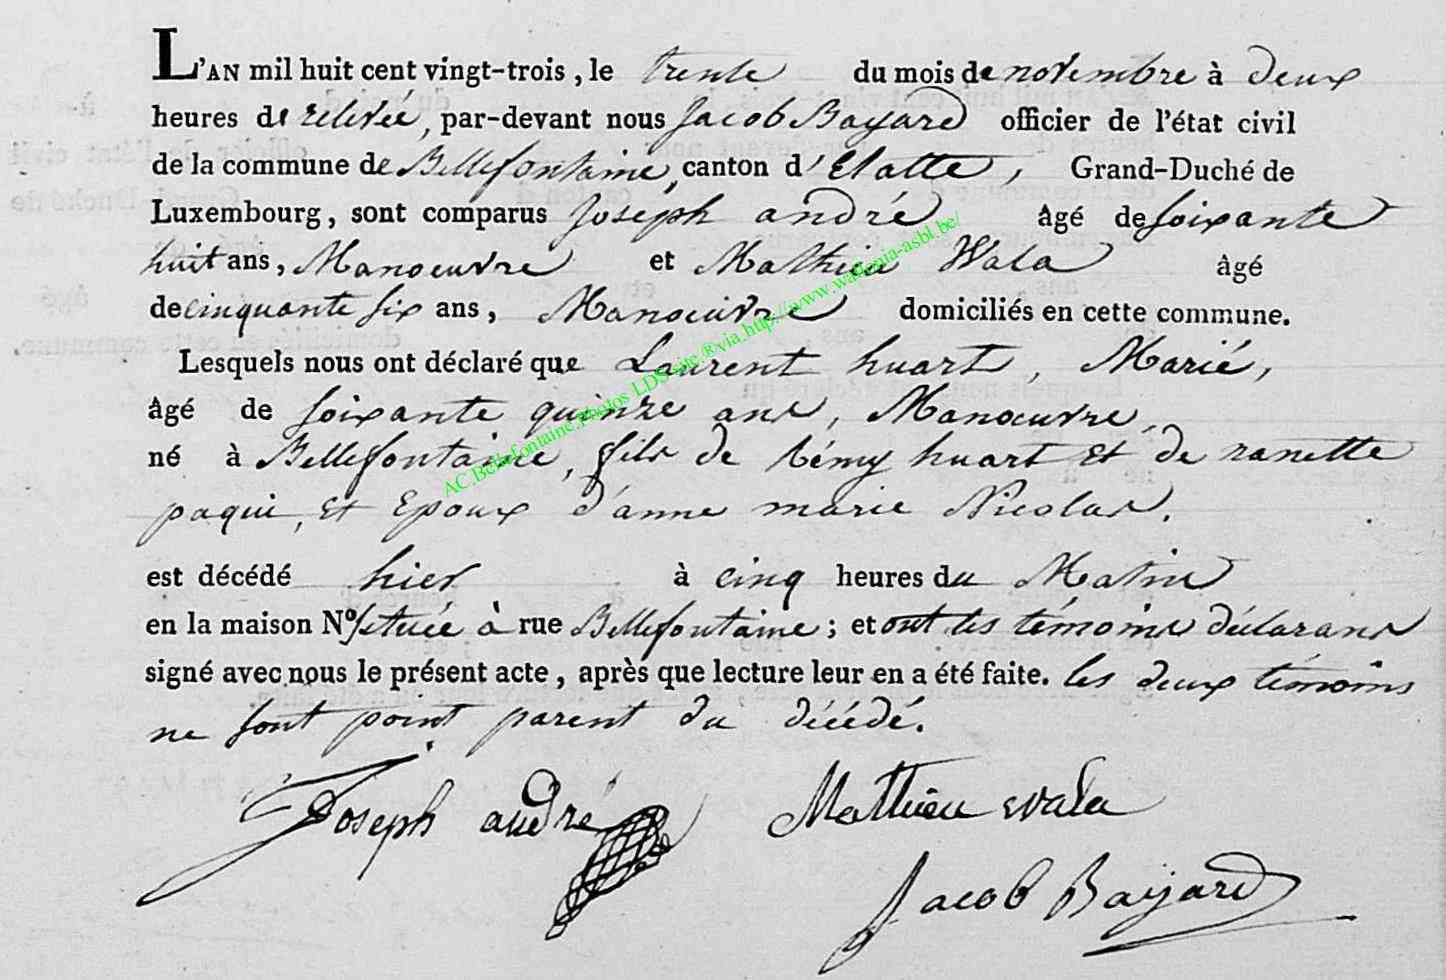 L'AN mil huit cent vingt-trois, le trente du mois de novembre à deux
heures de relevée, par-devant nous Jacob Bayard officier de l'état civil
de la commune de Bellefontaine, canton d'Etatte, Grand-Duché de
Luxembourg, sont comparus Joseph andré âgé de soixante
huit ans, Manoeuvre et Mathieu Wala âgé
de cinquante six ans, Manoeuvre domiciliés en cette commune.
Lesquels nous ont déclaré que Laurent huart, Marié,
âgé de soixante quinze ans, Manoeuvre,
né à Bellefontaine, fils de rémy huart et de nanette
paqui, et Epoux d'anne marie Nicolas.
est décédé hier à cinq heures du Matin
en la maison N° située à rue Bellefontaine; et ont les témoins déclarans
signé avec nous le présent acte, après que lecture leur en a été faite. les deux témoins
ne sont point parent du décédé.
Joseph andré Mathieu wala
Jacob Bayard
AC.Bellefontaine.Photos LDS site.®via.http://www.wallonia-asbl.be/